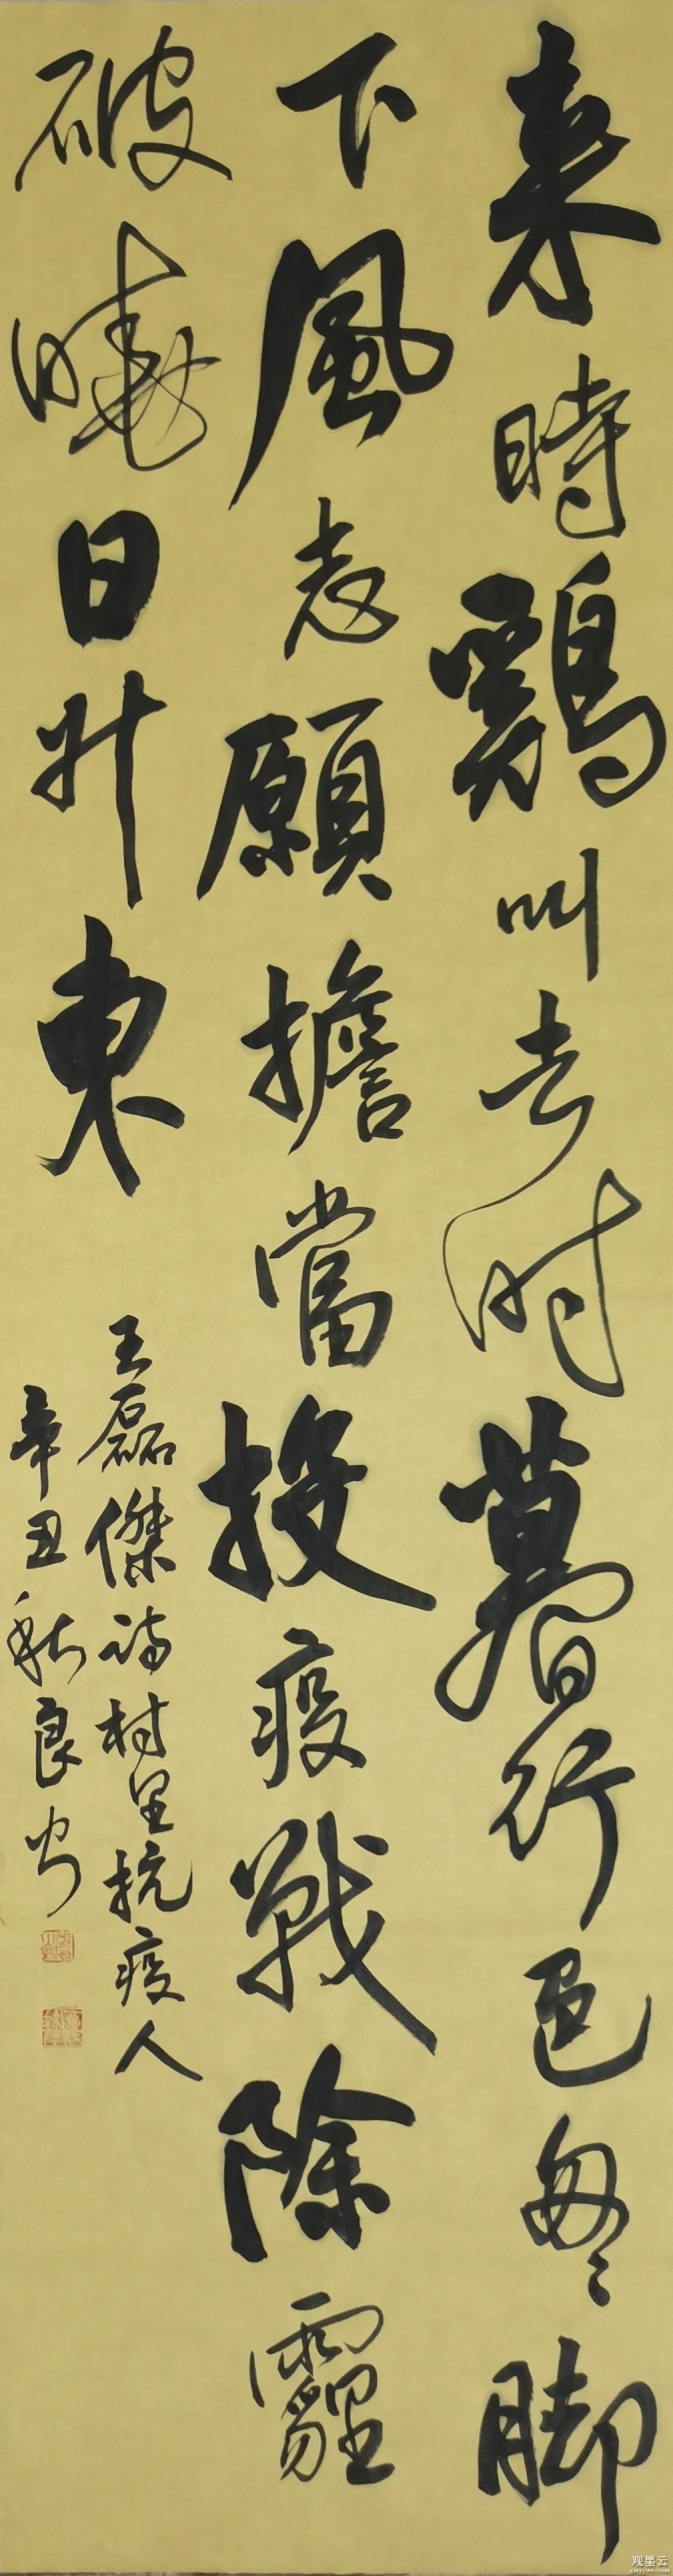 来時鷄叫去时暮行色匆々脚
下風志願擔當投疫戰除霾
破曉日升東
王磊傑詩村里抗疫人
辛丑秋良
观墨云